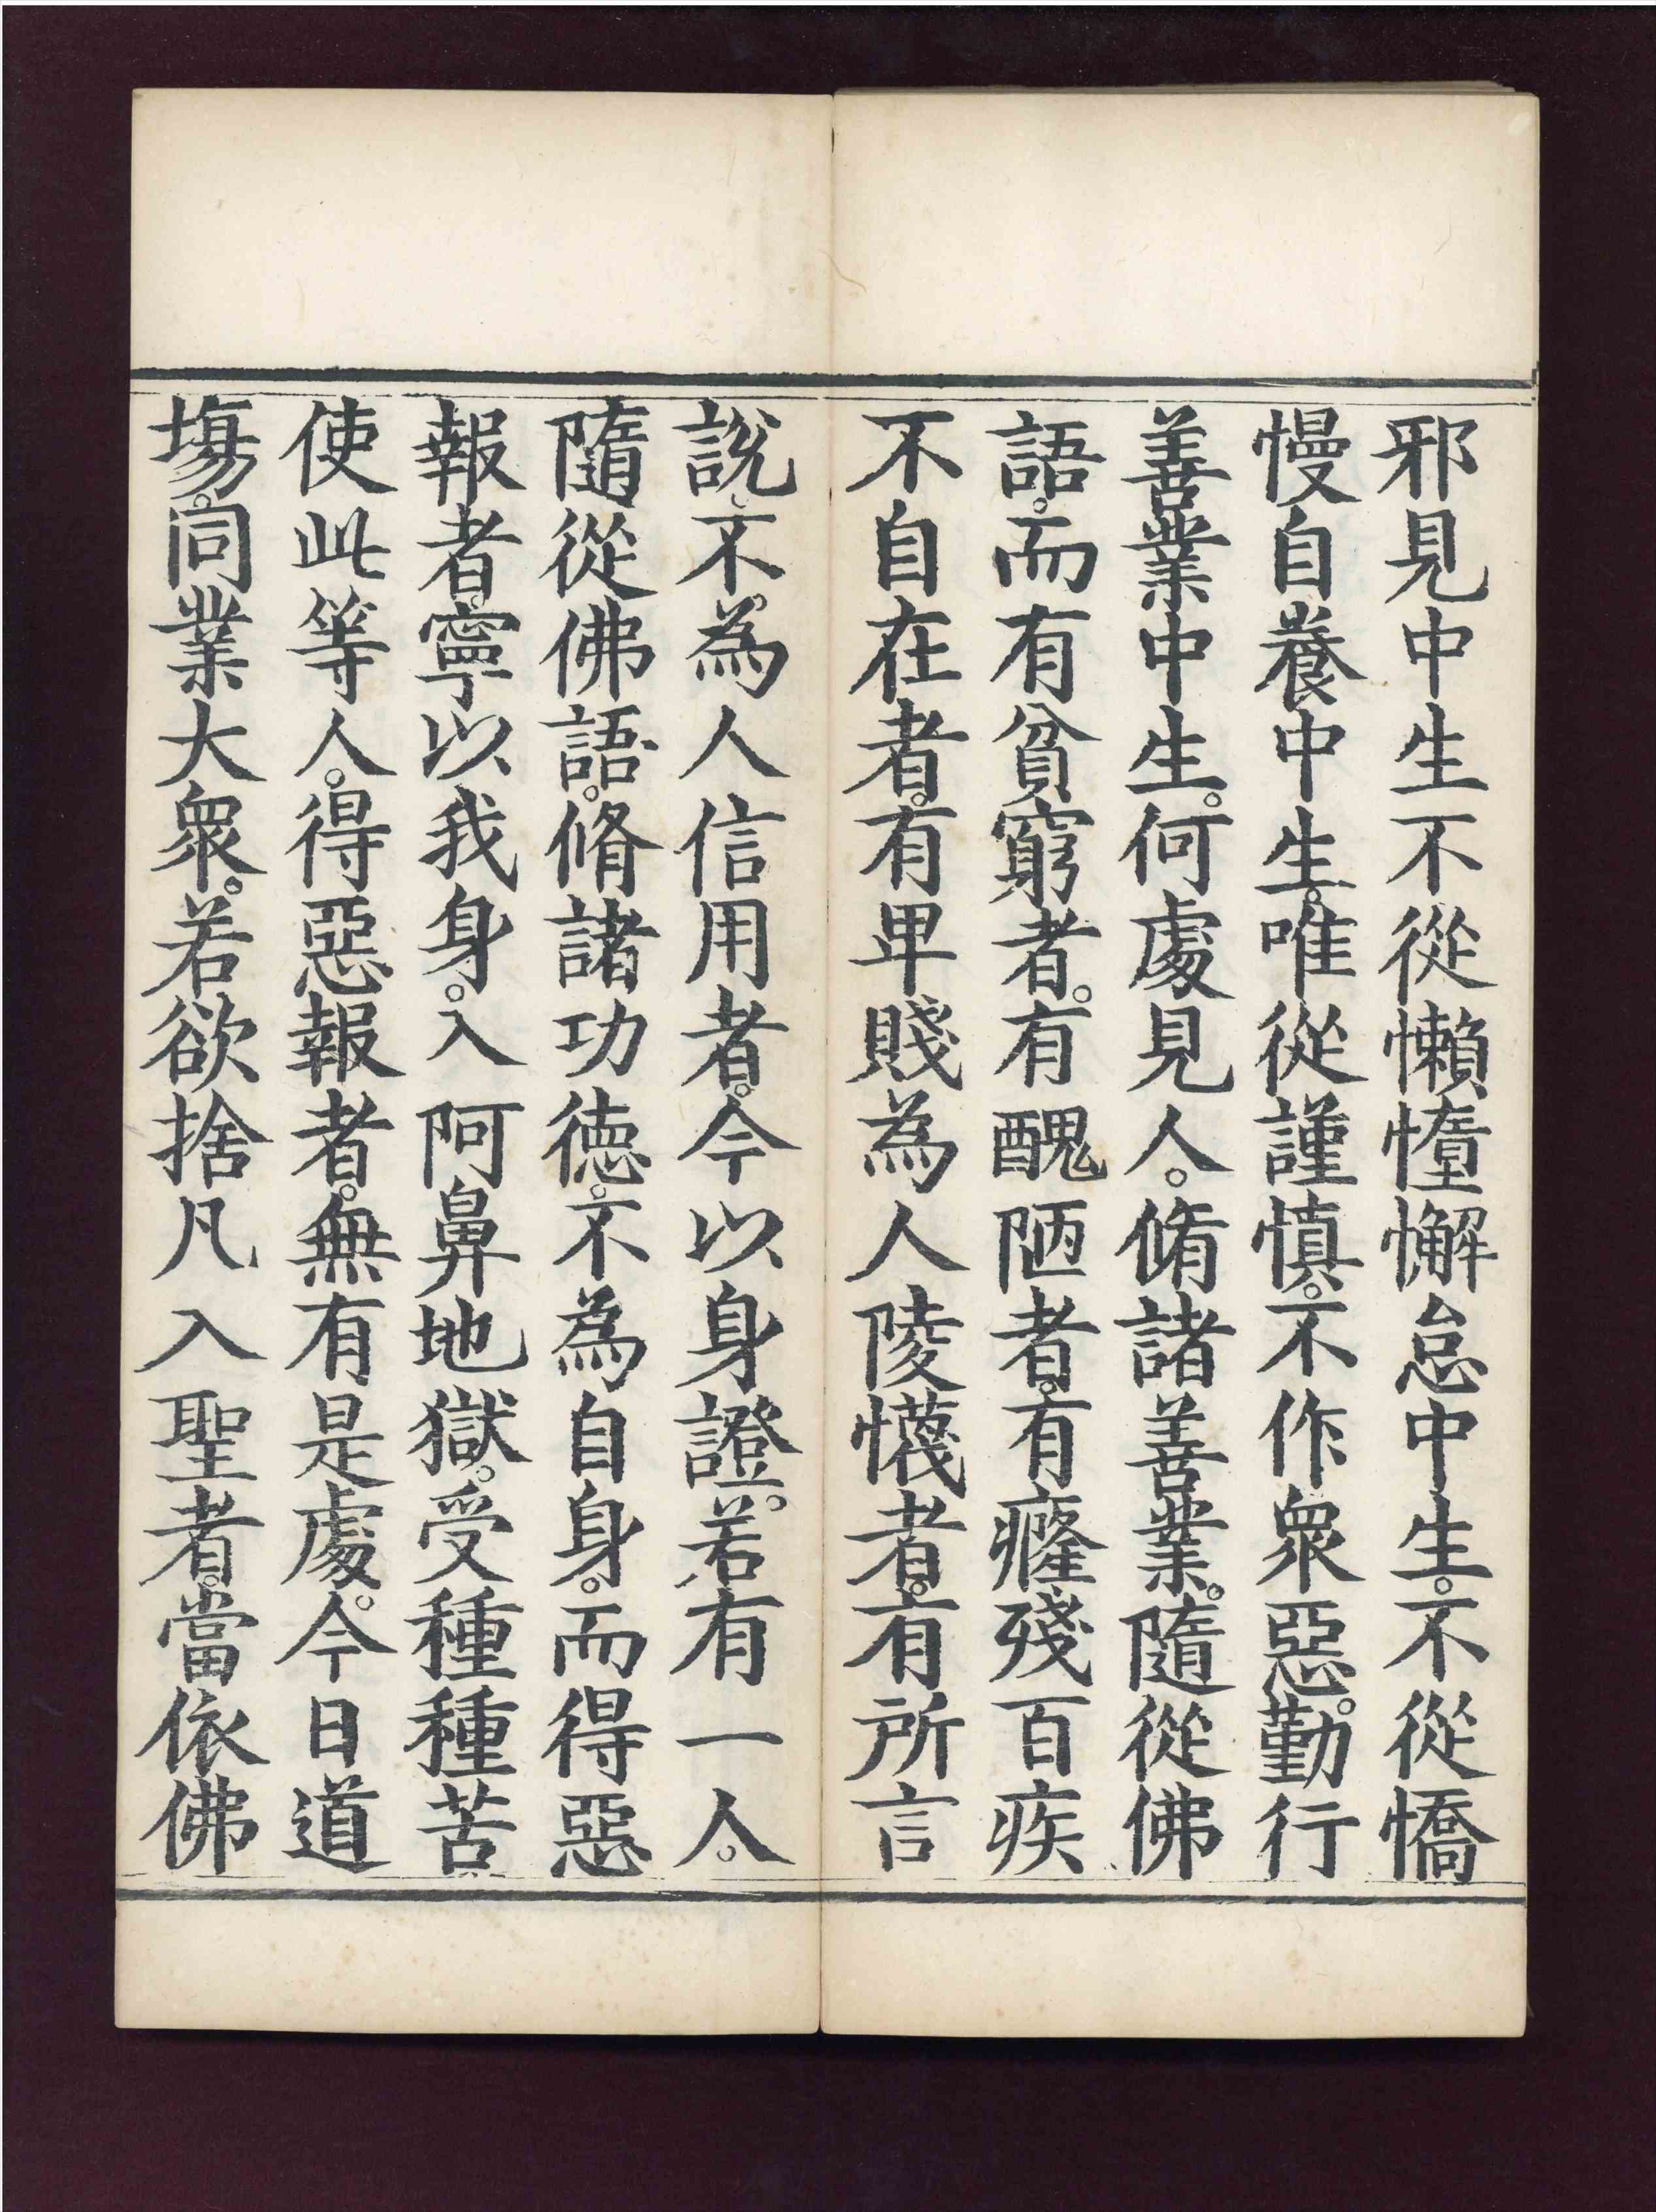 邪見中生不從懶惰懈怠中生。不從憍
慢自養中生。唯從謹慎。不作衆惡。勤行
善業中生。何處見人。脩諸善業。隨從佛
語。而有貧窮者。有醜陋者。有癃殘百疾
不自在者。有卑賤為人陵懱者。有所言
說。不。為人信用者。今以身證。若有一人。
隨從佛語。脩諸功德。不為自身。而得惡
報者。寧以我身。入阿鼻地獄。受種種苦
使此等人。得惡報者。無有是處。今日道
場。同業大衆。若欲捨凡入聖者。當依佛